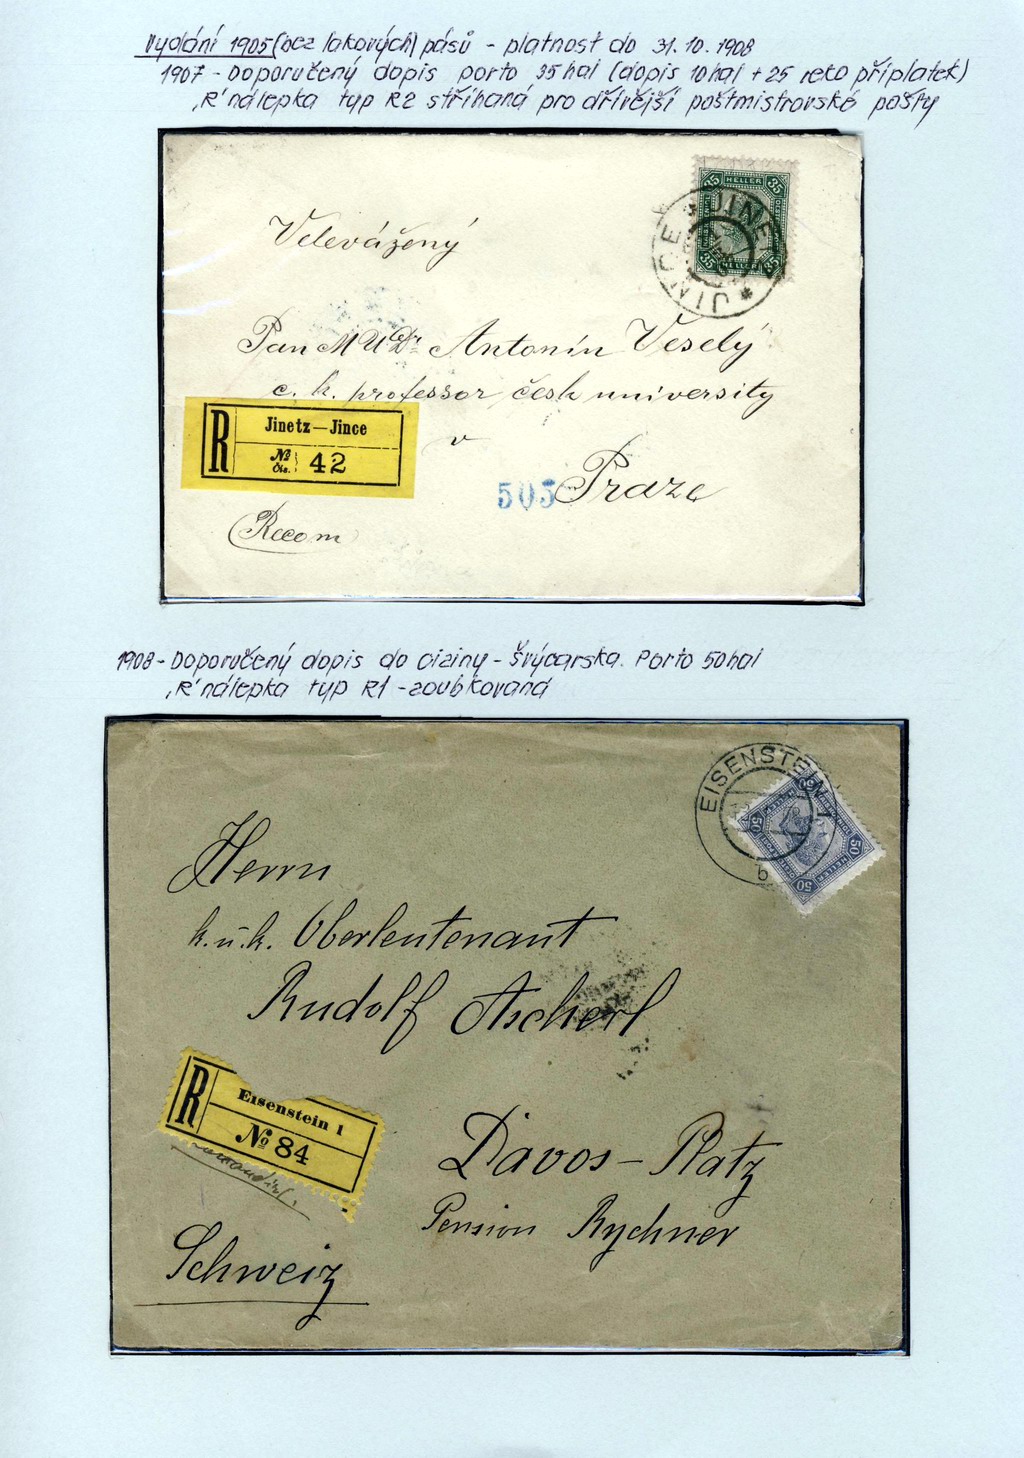 Vydání 1905 (bez lakových) pásů - platnost do 31.10.1908
1907 - Doporučený dopis porto 35 hal (dopis 10 hal + 25 reko příplatek)
„R" nálepka typ R2 stříhaná pro dřívější poštmistrovské pošty
35 HELLER 35
35 HELLER 35
JINETZ
JINCE
Velevážený
Pan MUDr Antonín Veselý
c. k. professor česk university
v
Praze
505
R
Jinetz—Jince
№ Čís. 42
(Recom
1908 - Doporučený dopis do ciziny - Švýcarska. Porto 50 hal
„R" nálepka typ R1 - zoubkovaná
EISENSTEIN 1
b
50 HELLER 50
Herrn
k. u. k. Oberleutenant
Rudolf Ascherl
R
Eisenstein 1
№ 84
Davos - Platz
Pension Rychner
Schweiz